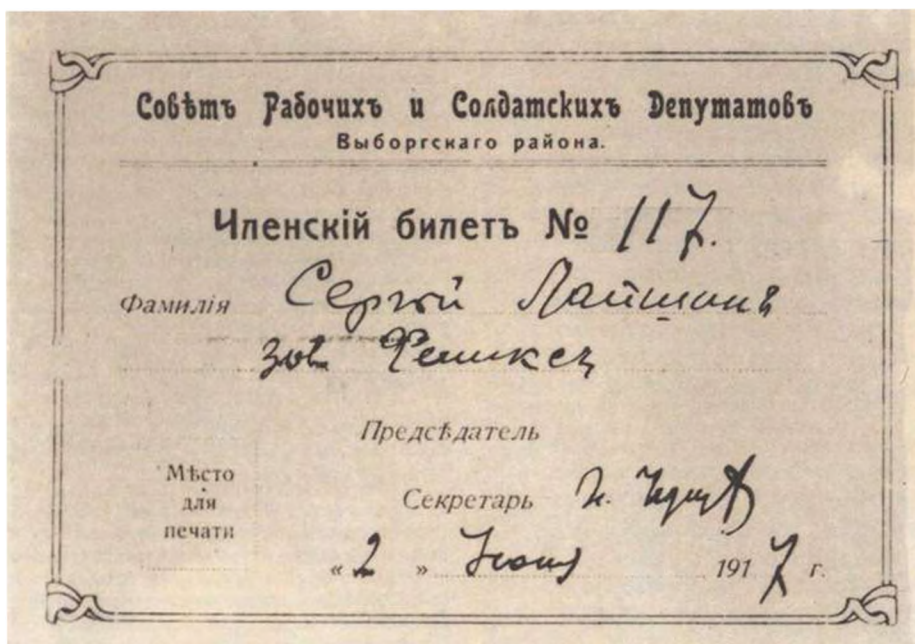 Совѣтъ Рабочихъ и Солдатскихъ Депутатовъ
Выборгскаго района.
Членскій билетъ № 117.
Фамилія Сергѣй
зав Феникс
Предсѣдатель
Мѣсто
для
печати
Секретарь
«2» Июня 1917 г.